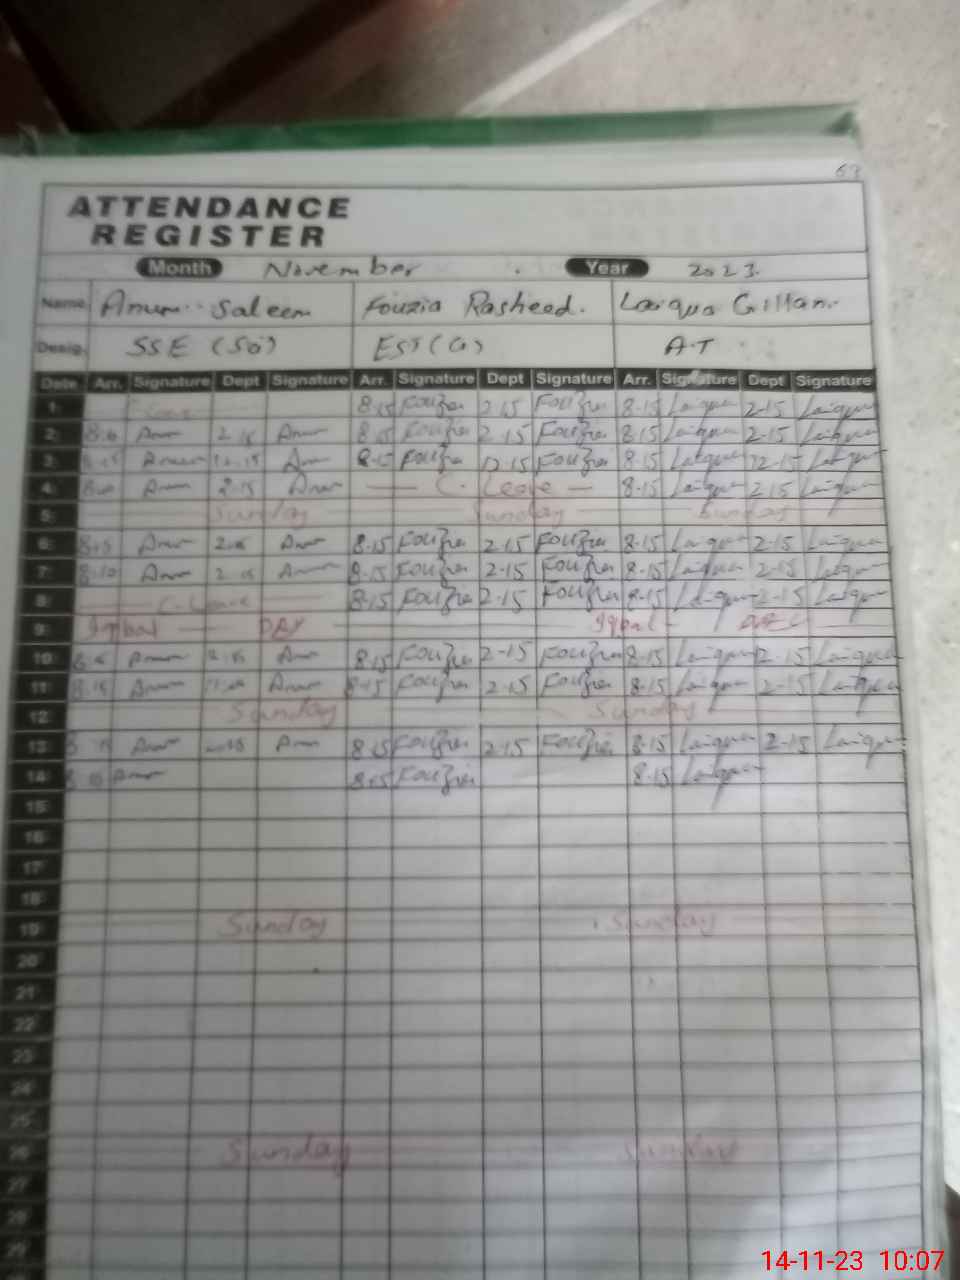 67
ATTENDANCE
REGISTER
Month November Year 2023.
Name Anum Saleem Fouzia Rasheed. Laiqua Gillani
Desig. SSE (Sc) EST (G) A.T
Date Arr. Signature Dept Signature Arr. Signature Dept Signature Arr. Signature Dept Signature
1 Leave 8.15 Fouzia 2.15 Fouzia 8-15 Laiqua 2-15 Laiqua
2 Anum Anum 8.15 Fouzia 2.15 Fouzia 8.15 Laiqua 2-15 Laiqua
3 Anum 12.15 Anum 8-15 Fouzia 12.15 Fouzia 8-15 Laiqua 12-15 Laiqua
4 Anum 2-15 Anum C. Leave 8.15 Laiqua 2.15 Laiqua
5 Sunday Sunday Sunday
6 Anum Anum 8.15 Fouzia 2.15 Fouzia 8-15 Laiqua 2-15 Laiqua
7 8-10 Anum 2.15 Anum 8.15 Fouzia 2.15 Fouzia 8-15 Laiqua 2-15 Laiqua
8 C-Leave 8.15 Fouzia 2-15 Fouzia 8-15 Laiqua 2-15 Laiqua
9 Iqbal DAY Iqbal DAY
10 Anum Anum 8.15 Fouzia 2-15 Fouzia 8-15 Laiqua 2.15 Laiqua
11 Anum Anum 8-15 Fouzia 2.15 Fouzia 8-15 Laiqua 2-15 Laiqua
12 Sunday Sunday
13 Anum Anum 8.15 Fouzia 2.15 Fouzia 8-15 Laiqua 2-15 Laiqua
14 Anum 8.15 Fouzia 8-15 Laiqua
15
16
17
18
19 Sunday Sunday
20
21
22
23
24
25
26 Sunday Sunday
27
28
29
14-11-23 10:07